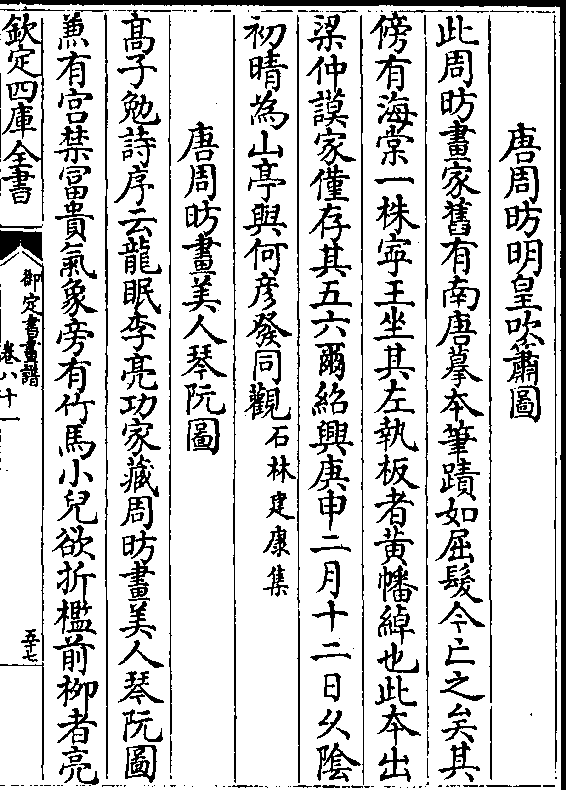 唐周昉明皇吹簫圖
此周昉畫家舊有南唐摹本筆蹟如屈髮今亡之矣其
傍有海棠一株寧王坐其左執板者黄幡綽也此本出
梁仲謨家僅存其五六爾紹興庚申二月十二日久隂
初晴為山亭與何彦發同觀石林建康集
唐周昉畫美人琴阮圖
髙子勉詩序云龍眠李亮功家藏周昉畫美人琴阮圖
兼有宫禁富貴氣象旁有竹馬小兒欲折檻前栁者亮
欽定四庫全書
御定書畫譜
卷八十一
五十七